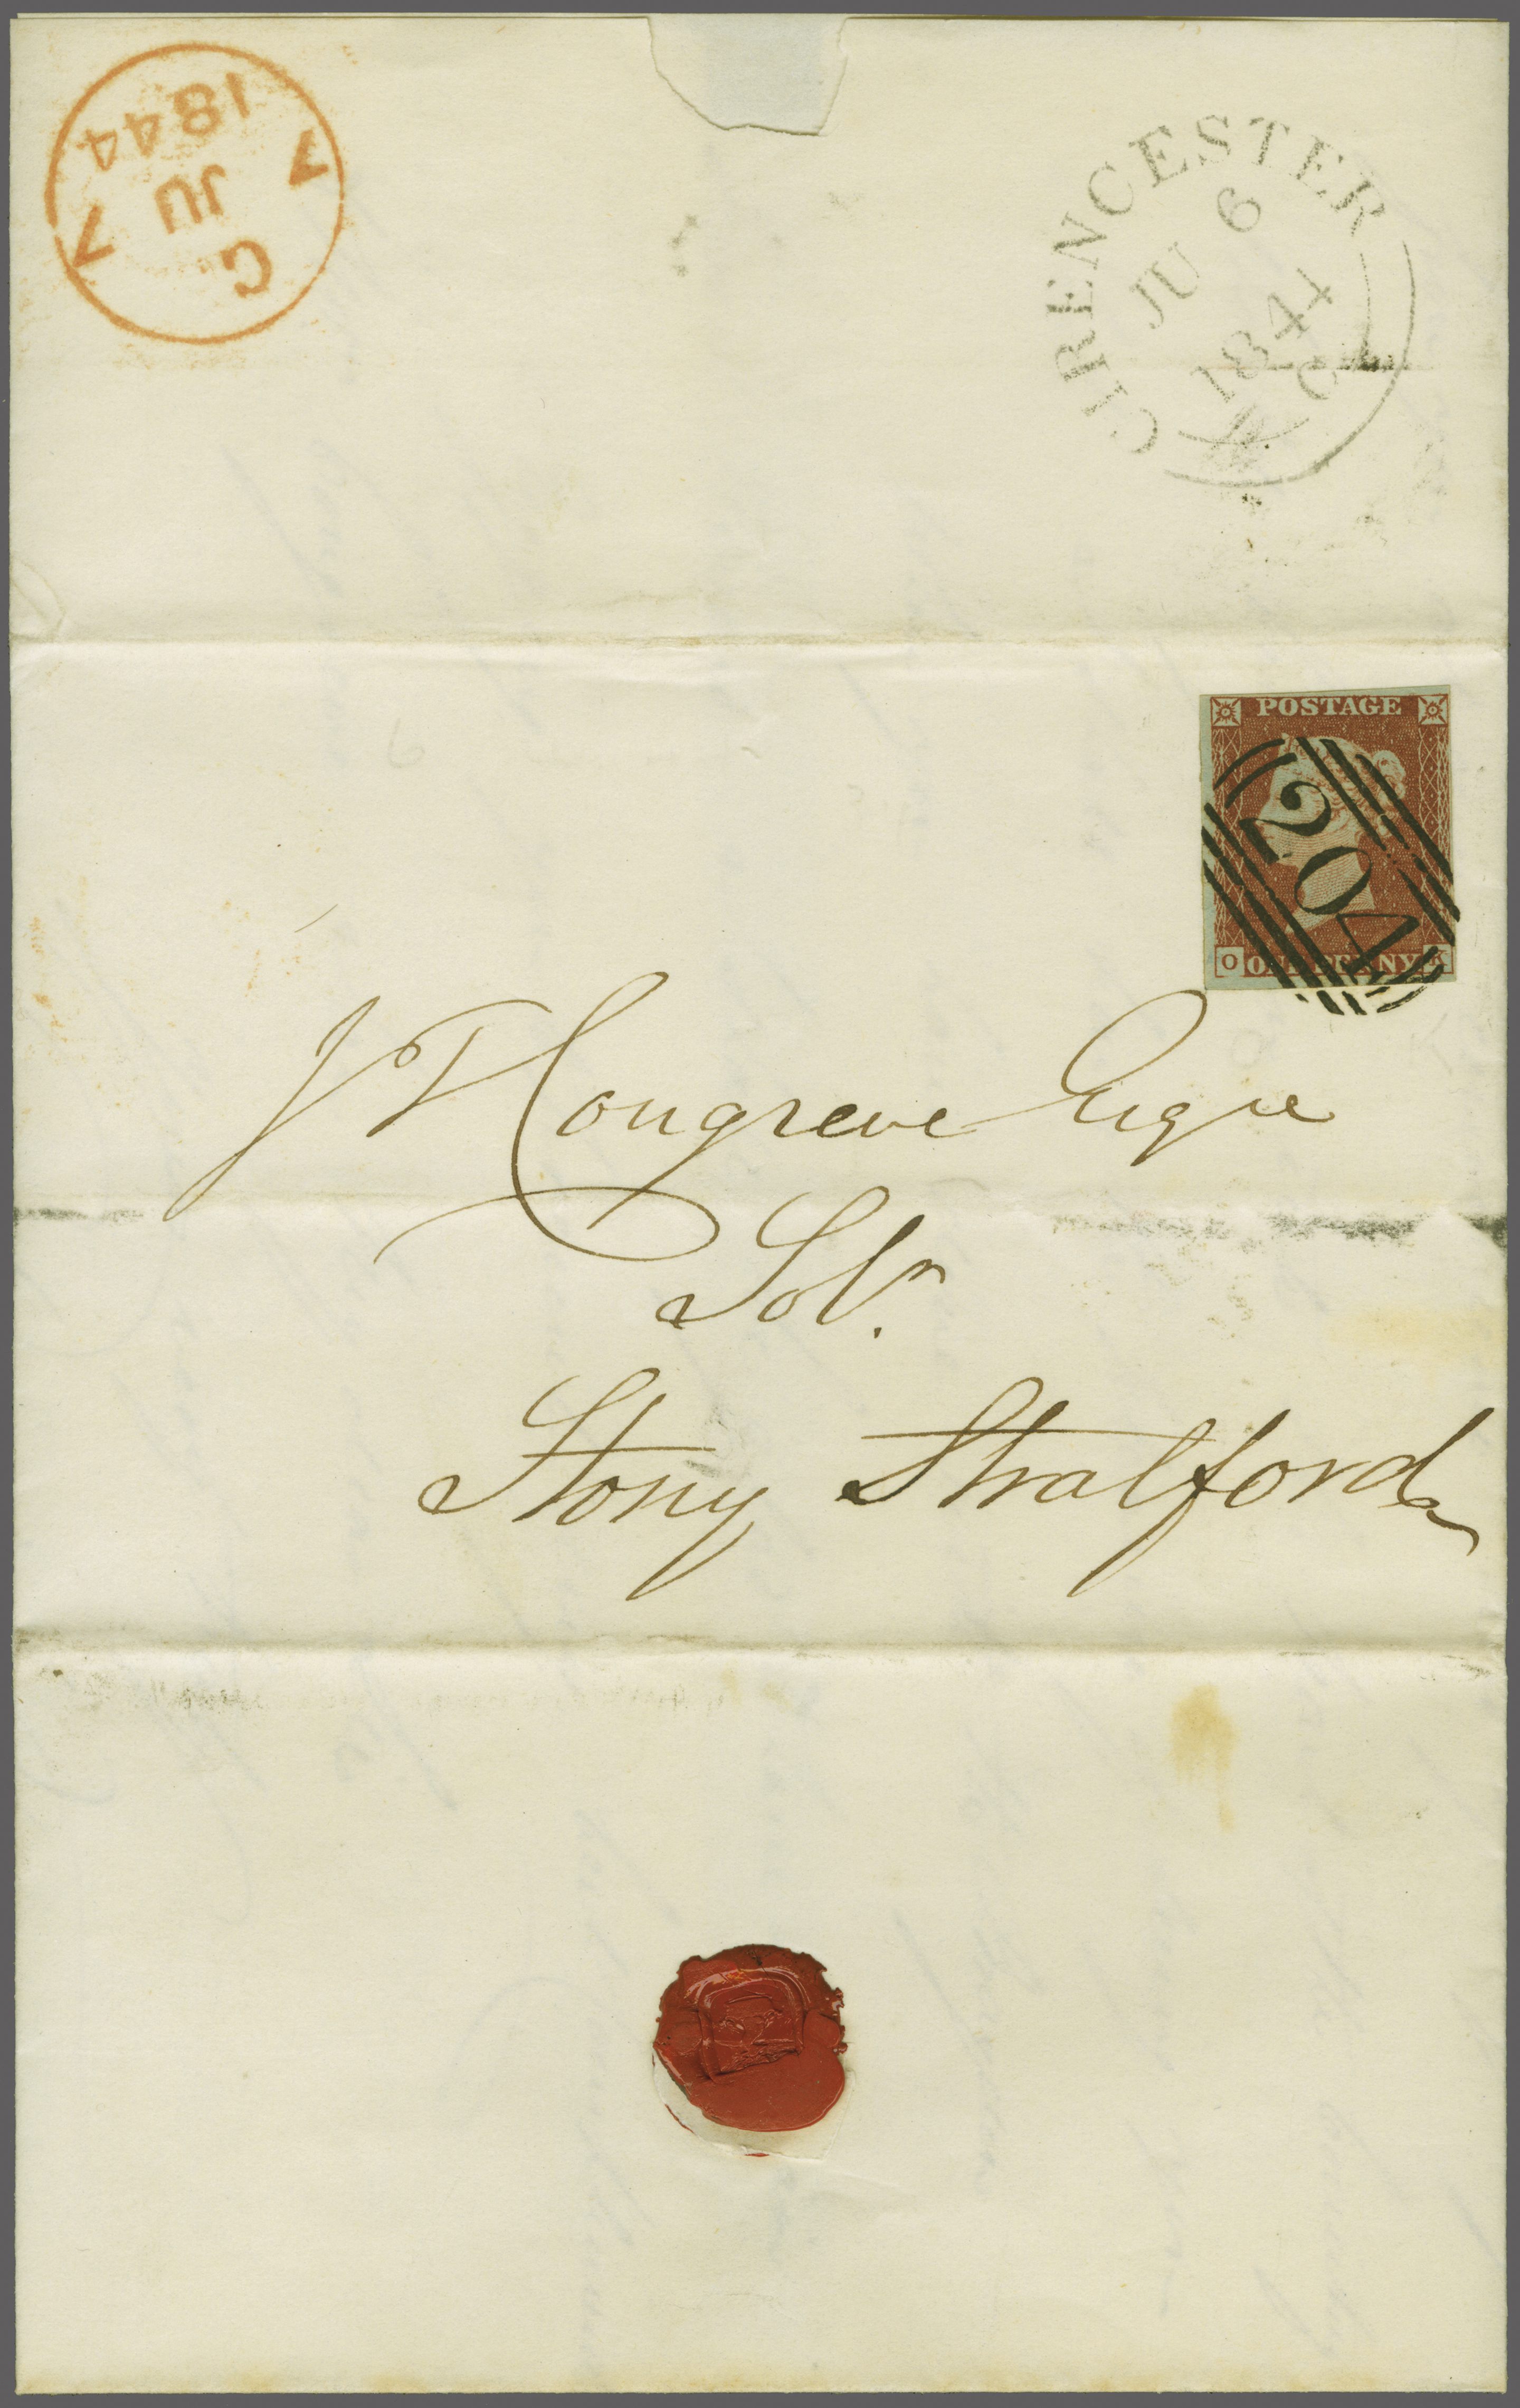 C
7 JU 7
1844
CIRENCESTER
JU 6
1844
C
POSTAGE
204
O ONE PENNY K
J V Congreve Esqre
Solr.
Stony Stratford